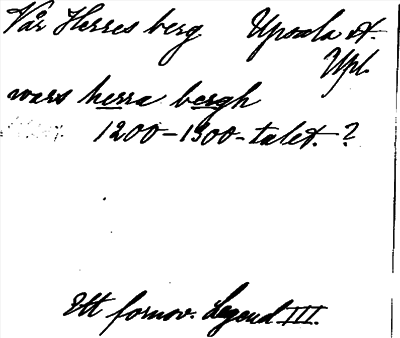 Vår Herres berg Upsala st.
Upl.
wars herra bergh
1200-1300-talet. ?
Ett fornsv. Legend. III.